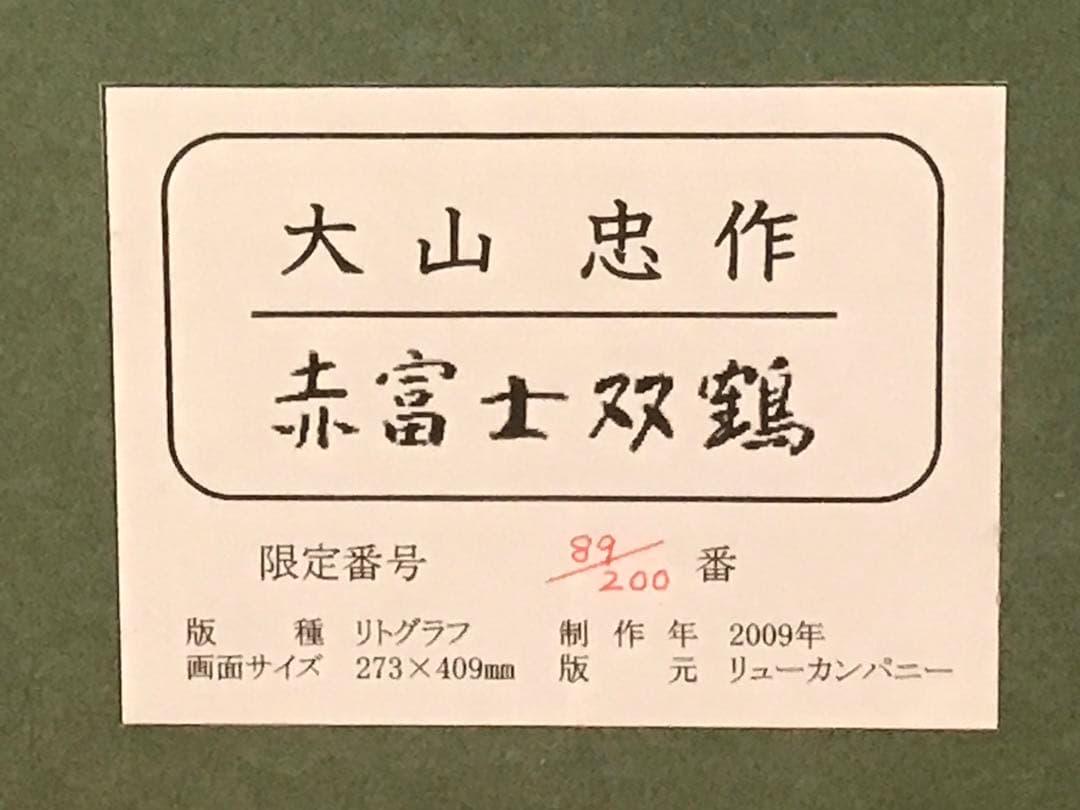 大山 忠作
赤富士双鶴
限定番号 89/200 番
版種 リトグラフ 制作年 2009年
画面サイズ 273×409㎜ 版元 リューカンパニー